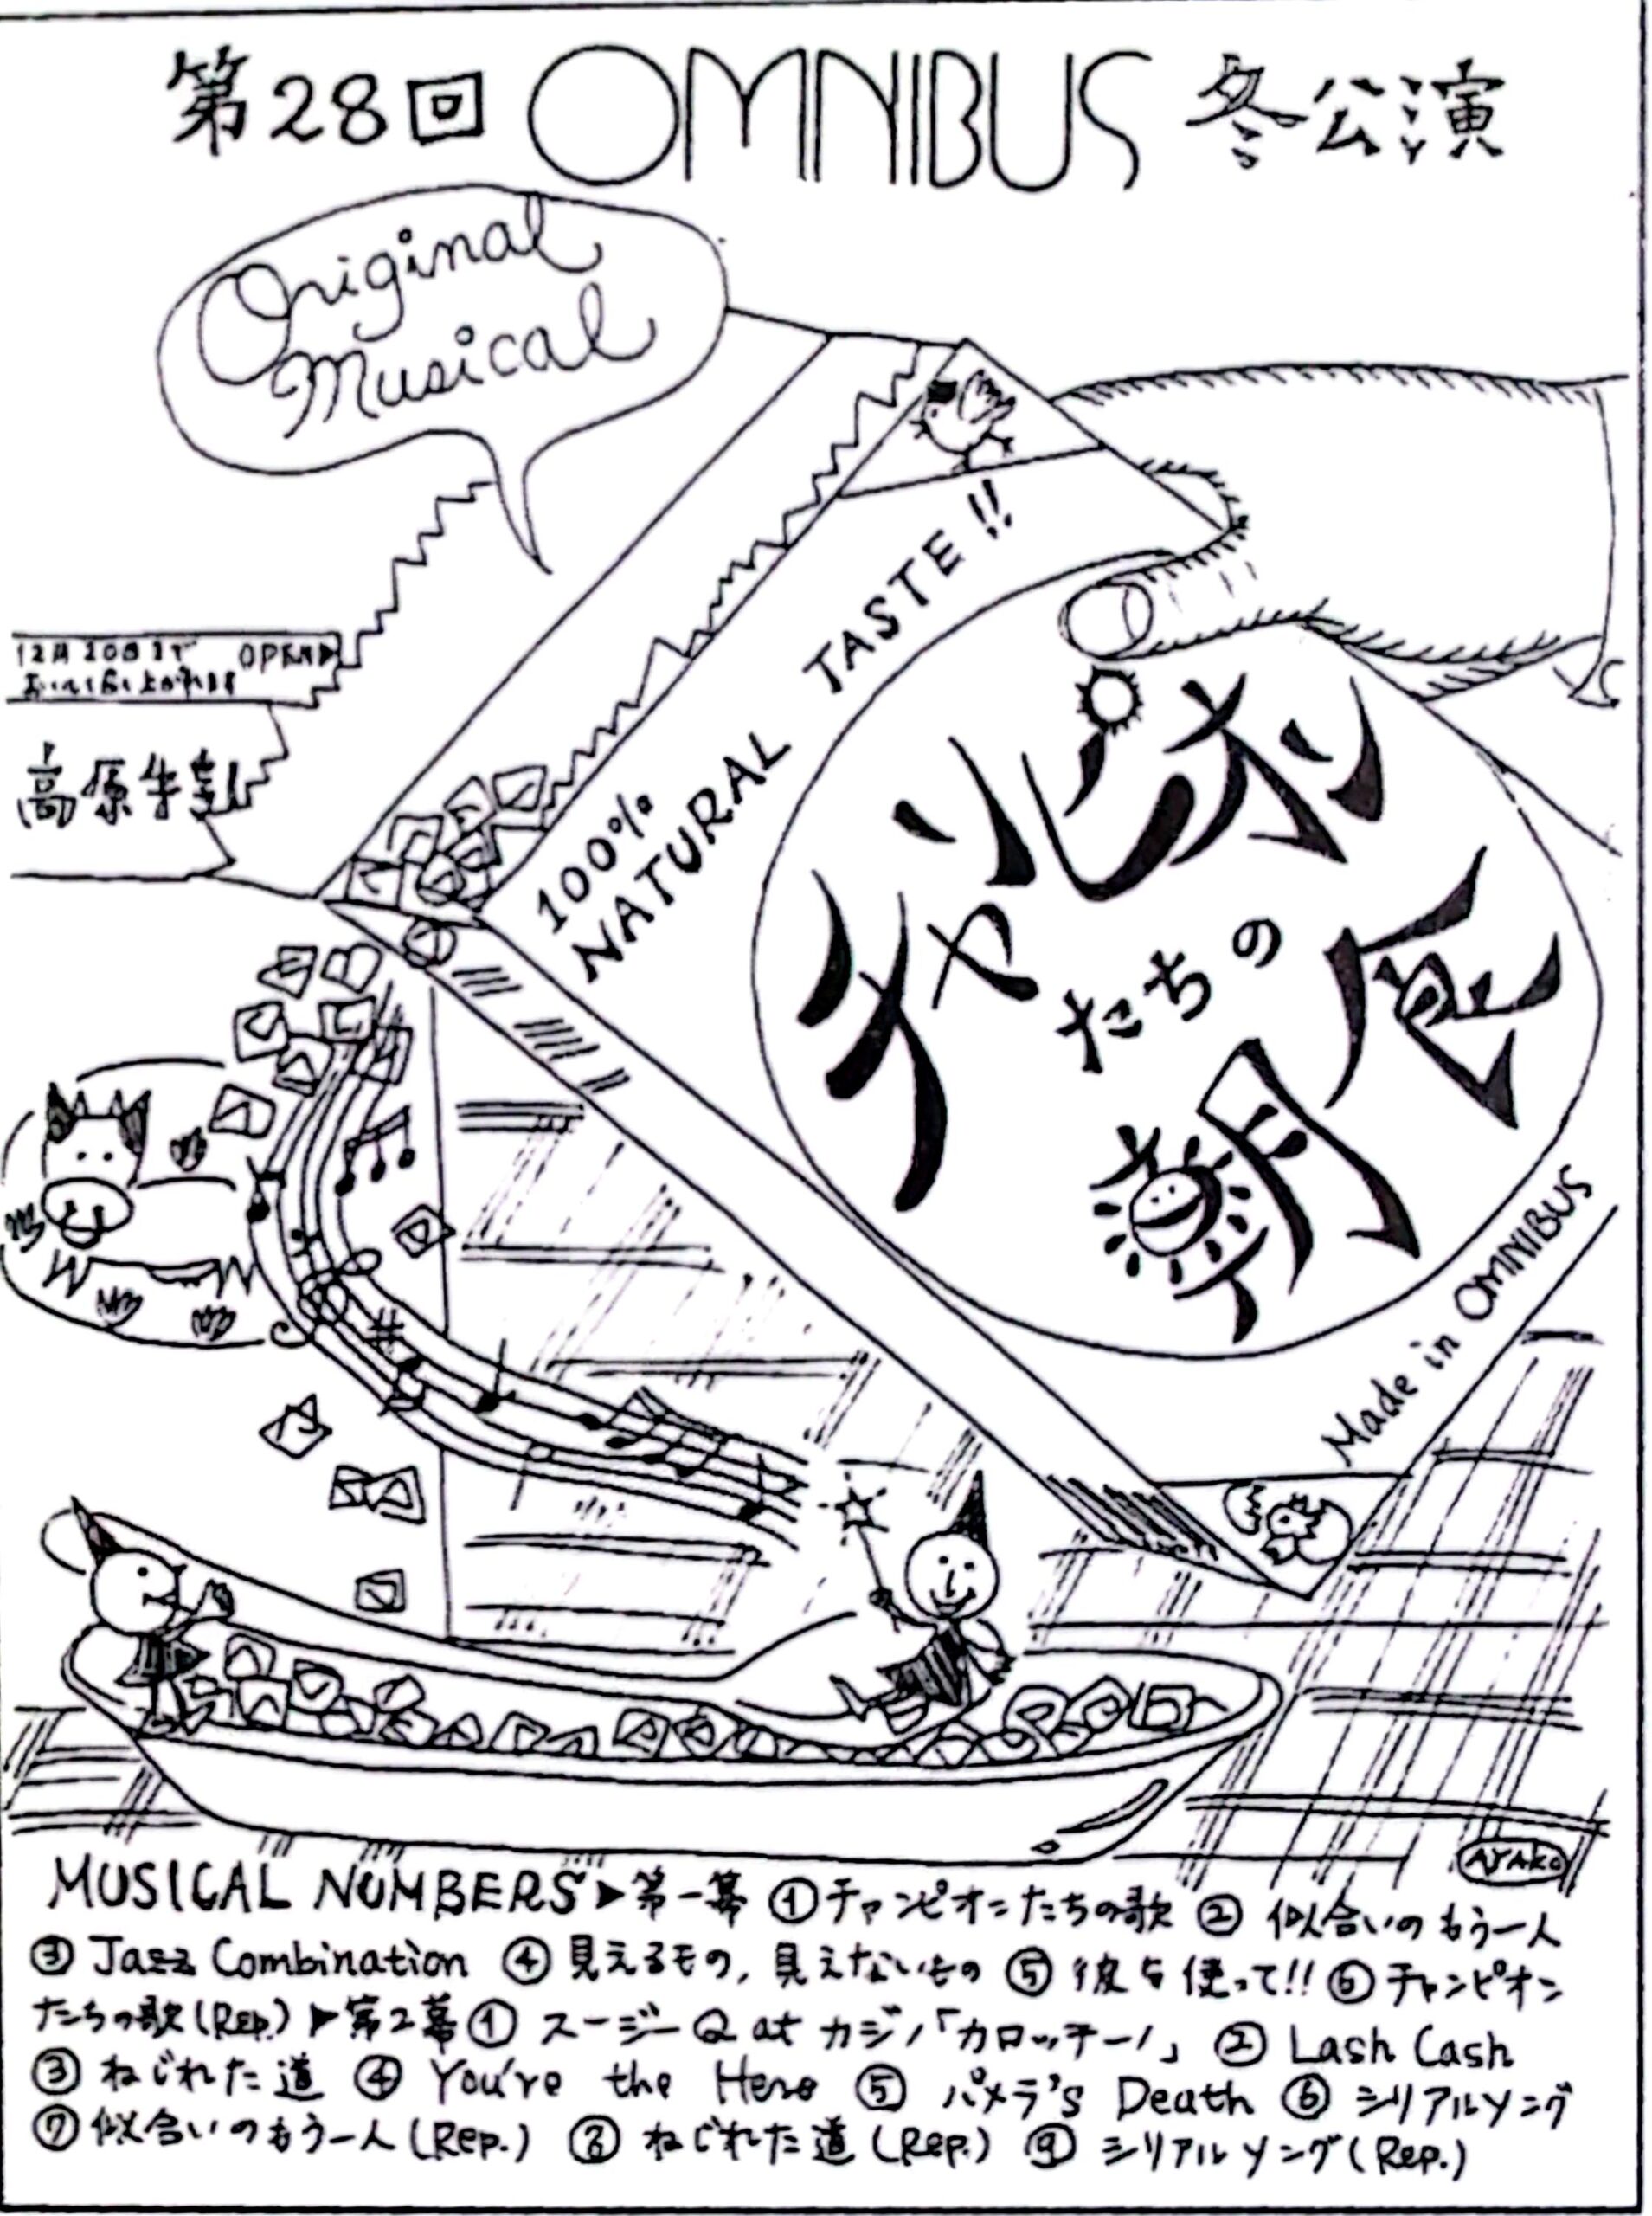 第28回 OMNIBUS 冬公演
Original
Musical
12月20日まで OPEN▶
おいしく召し上がれます
高原牛乳
100%
NATURAL TASTE!!
チャンピオン
たちの
朝食
Made in OMNIBUS
AYAKO
MUSICAL NUMBERS▶第一幕 ①チャンピオンたちの歌 ② 似合いのもう一人
③ Jazz Combination ④ 見えるもの、見えないもの ⑤ 彼を使って!! ⑥ チャンピオン
たちの歌(Rep.) ▶第2幕 ① スージーQ at カジノ「カロッチーノ」 ② Lash Cash
③ ねじれた道 ④ You're the Hero ⑤ パメラ's Death ⑥ シリアルソング
⑦ 似合いのもう一人(Rep.) ⑧ ねじれた道(Rep.) ⑨ シリアルソング(Rep.)